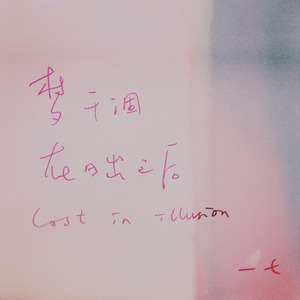 梦干涸
在日出之后
Lost in illusion
一七